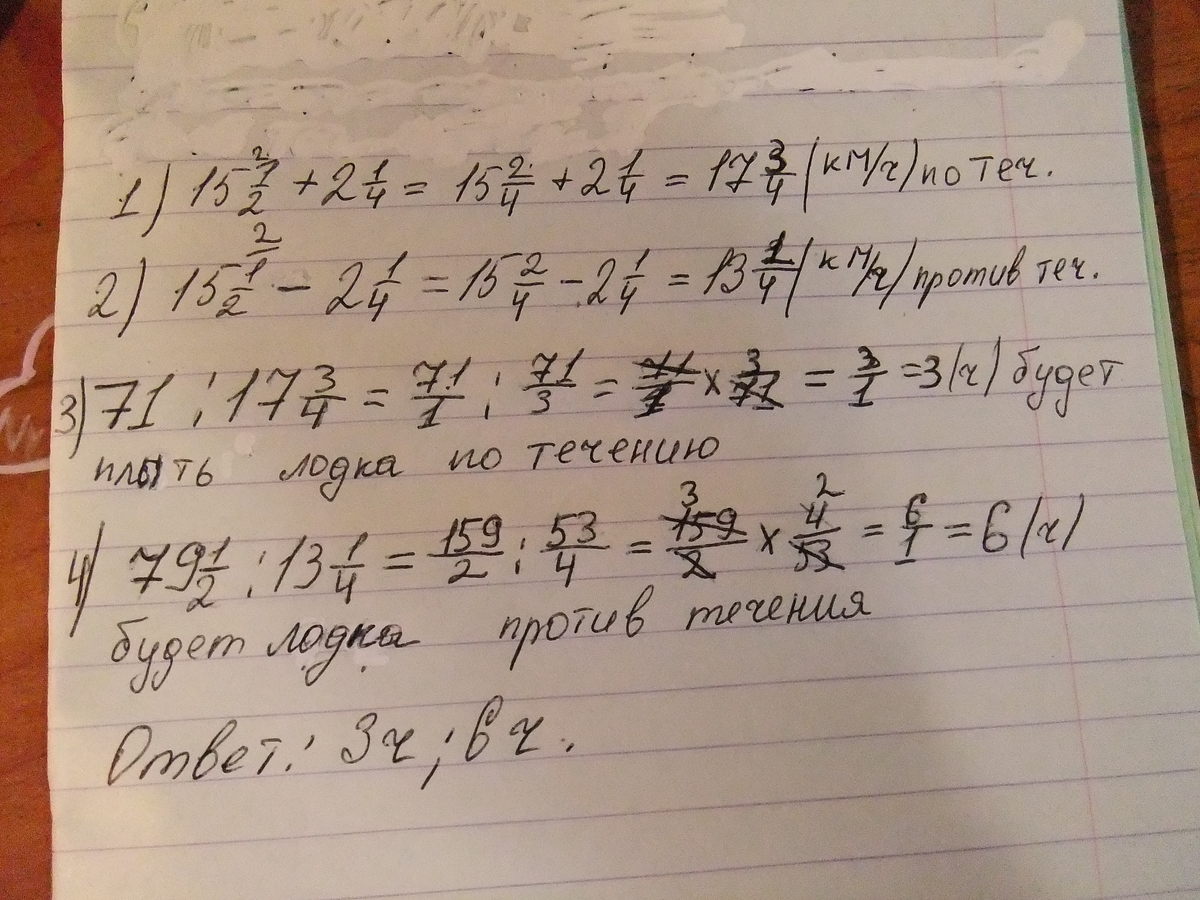 1) 15 1/2 + 2 1/4 = 15 2/4 + 2 1/4 = 17 3/4 (км/ч) по теч.
2) 15 1/2 - 2 1/4 = 15 2/4 - 2 1/4 = 13 1/4 (км/ч) против теч.
3) 71 : 17 3/4 = 71/1 : 71/3 = 71/1 x 3/71 = 3/1 = 3 (ч) будет
плыть лодка по течению
4) 79 1/2 : 13 1/4 = 159/2 : 53/4 = 159/2 x 4/53 = 6/1 = 6 (ч)
будет лодка против течения
Ответ: 3ч; 6ч.